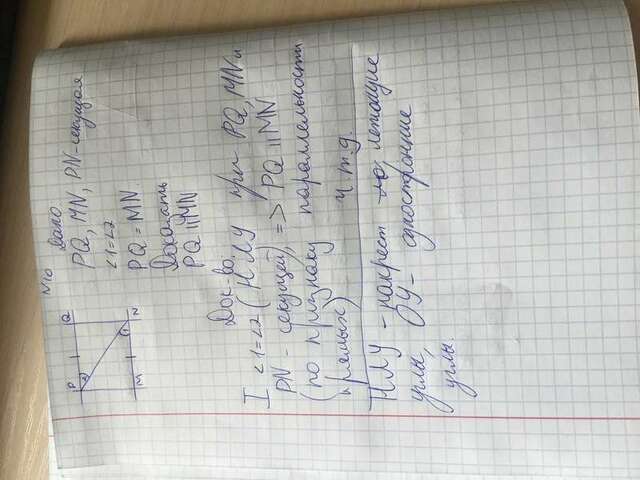 N10
Дано
P Q
PQ, MN, PN-секущая
2
∠1=∠2
1
M N
PQ = MN.
Доказать
PQ || MN
Док-во.
I ∠1=∠2 (НЛУ при PQ, MN и
PN - секущей), => PQ || MN
(по признаку параллельности
прямых) ч.т.д.
НЛУ - накрест летающие
углы, ОУ - одностронние
углы.